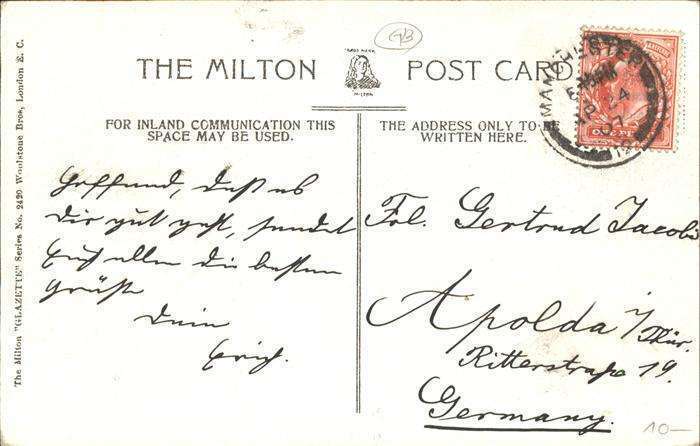 GB
THE MILTON POST CARD
TRADE MARK
MILTON
FOR INLAND COMMUNICATION THIS
SPACE MAY BE USED.
THE ADDRESS ONLY TO BE
WRITTEN HERE.
The Milton "GLAZETTE" Series No. 2420 Woolstone Bros, London E. C.
MANCHESTER
24
07
ONE PE
Hoffend, daß es
Dir gut geht, sendet
Euch allen die besten
Grüße
Dein
Erich.
Frl. Gertrud Jacobi
Apolda i/Thür.
Ritterstraße 19.
Germany.
10—